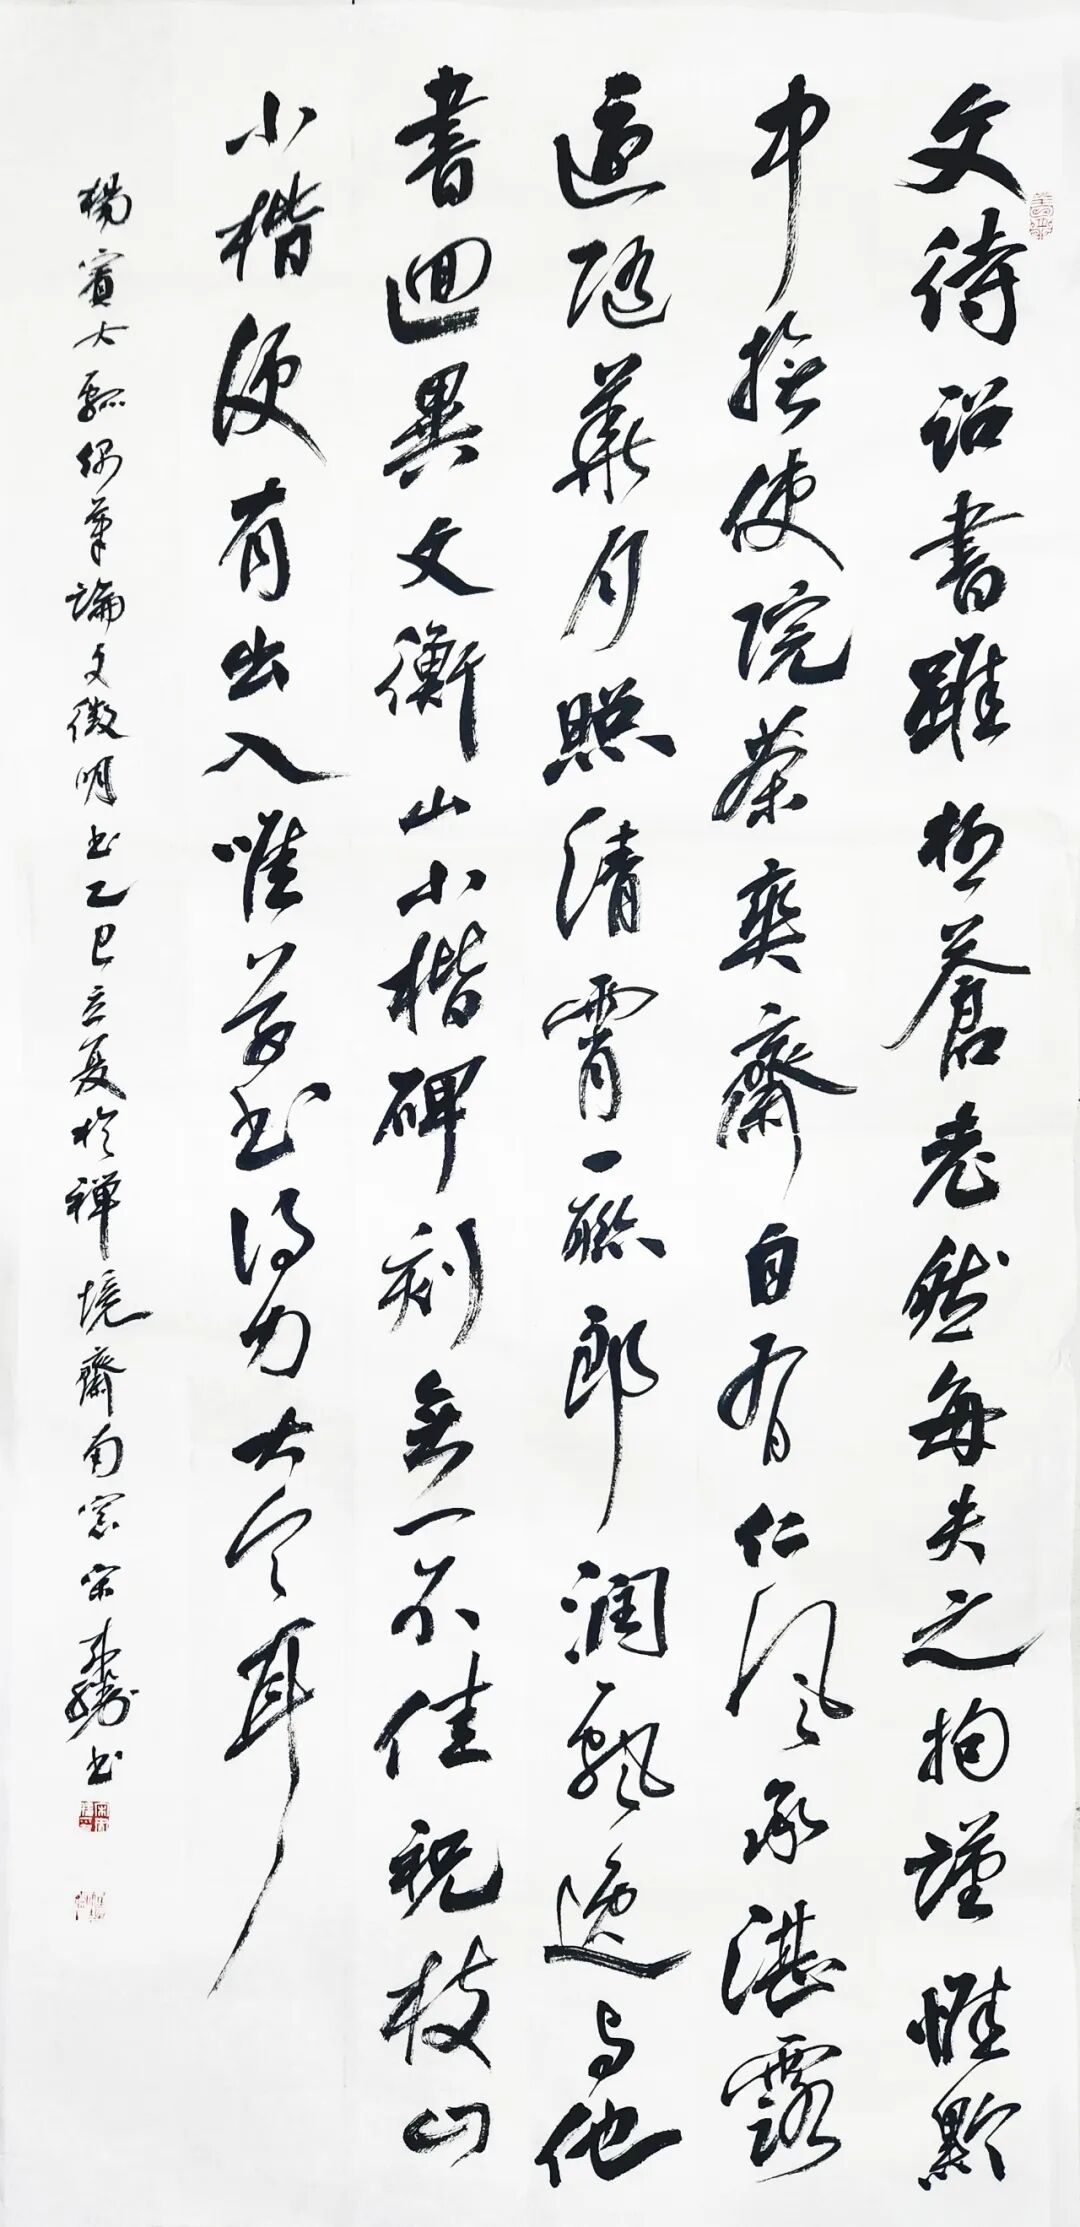 文待詔書雖極蒼老然每失之拘謹惟黔
中撫使院茶奕齋自有仁風承湛露
還隨華月照清霄一聯郎潤飄逸与他
書迥異文衡山小楷碑刻無一不佳祝枝山
小楷便有出入唯草书得力大令耳
楊賓大瓢偶筆論文徵明书乙巳立夏於禪境齋南窓宋书